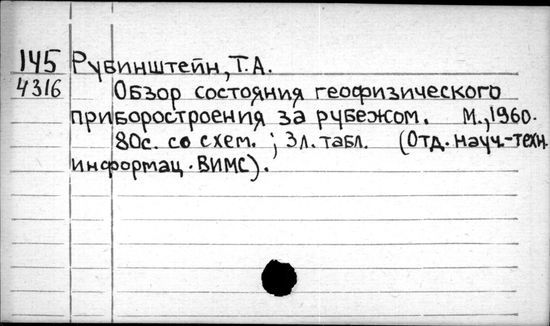 145 Рубинштейн, Т.А.
4316 Обзор состояния геофизического
приборостроения за рубежом. М., 1960.
80с. со схем.; 3л. табл. (Отд. науч.-техн.
информац. ВИМС).